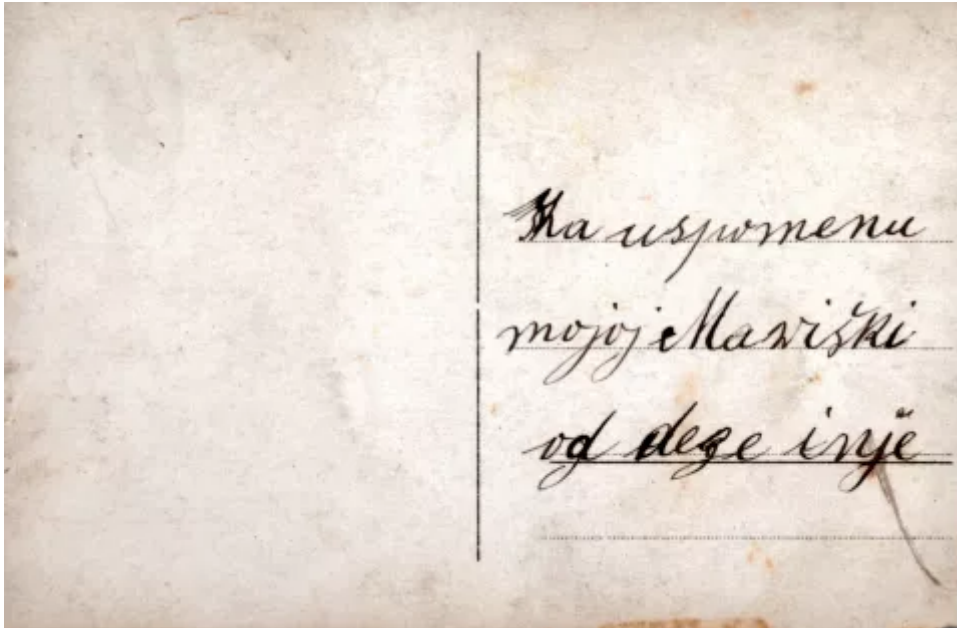 Za uspomenu
mojoj Mariški
od deze i nje